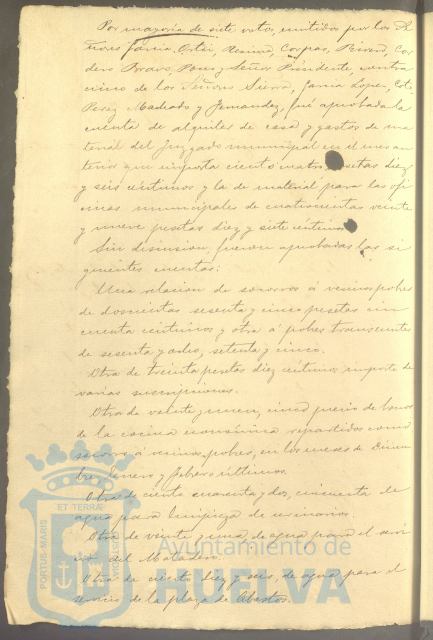 Por mayoría de siete votos, emitidos por los Se
ñores García, Ortiz, Resina, Corpas, Rivero, Cor
dero Bravo, Pons y Señor Presidente contra
cinco de los Señores Sierra, García Lopez, Coto,
Perez Machado y Fernandez, fué aprobada la
cuenta de alquiler de casa y gastos de ma
terial del Juzgado municipal en el mes an
terior que importa ciento cuatro pesetas diez
y seis céntimos y la de material para las ofi
cinas municipales de cuatrocientas veinte
y nueve pesetas diez y siete céntimos.
Sin discusion, fueron aprobadas las si
guientes cuentas:
Una relacion de socorros á vecinos pobres
de doscientas sesenta y cinco pesetas cin
cuenta céntimos y otra á pobres transeuntes
de sesenta y ocho, setenta y cinco.
Otra de treinta pesetas diez céntimos importe de
varias suscripciones.
Otra de veinte y nueve, cinco precio de bonos
de la cocina económica repartidos como
socorro á vecinos pobres, en los meses de Diciem
bre, Enero y Febrero últimos.
Otra de ciento cuarenta y dos, cincuenta de
agua para limpieza de urinarios.
Otra de veinte y una, de agua para el servi
cio del Matadero.
Otra de ciento diez y seis, de agua para el
servicio de la plaza de Abastos.
ET TERRÆ
PORTUS MARIS
CUSTODIA
Ayuntamiento de
HUELVA